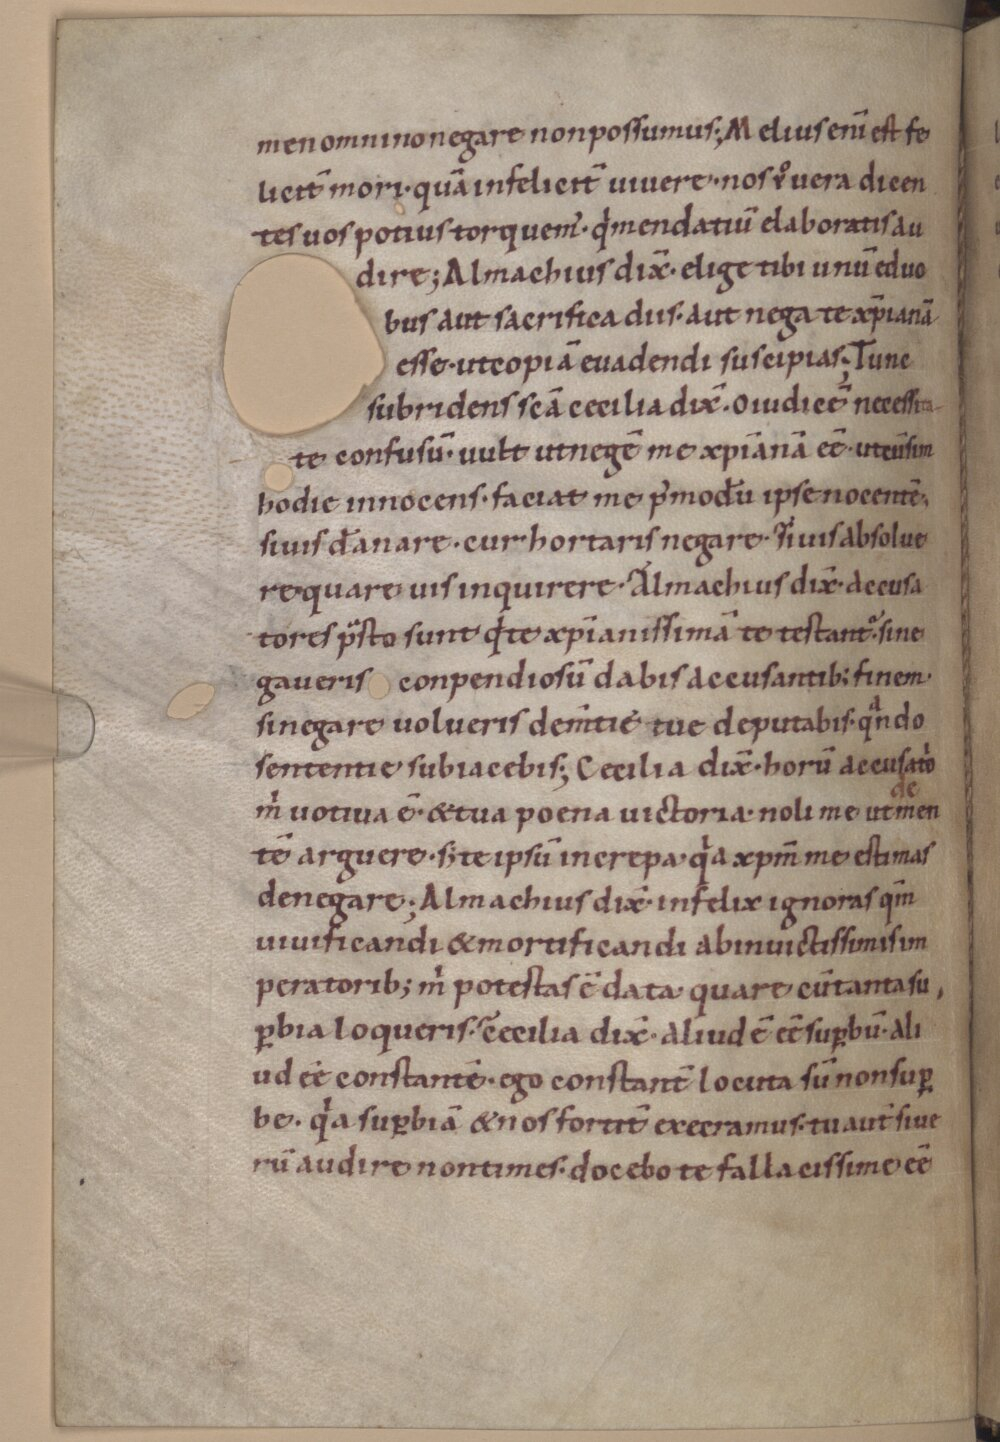 men omnino negare non possumus; Melius enī est fe
licit̄ mori· quā infelicit̄ uiuere· nos ů uera dicen
tes uos potius torquem᷒· q̇ mendatiū elaboratis au
dire; Almachius dix̄· elige tibi unū e duo
bus aut sacrifica diis· aut nega te xp̄ianā
esse· ut copiā euadendi suscipias; Tunc
subridens scā cecilia dix̄· O iudicē necessita
te confusū· uult ut neḡe me xp̄ianā eē· ut eū sim
hodie innocens· faciat me p̄modū ipse nocentē;
si uis dānare· cur hortaris negare· Si uis absolue
re quare uis inquirere· Almachius dix̄· accusa
tores p̄sto sunt q̇ te xp̄ianissimā te testant᷒· si ne
gaueris conpendiosū dabis accusantib; finem·
si negare uolueris dem̄tię tuę deputabis· qͣndo
sententię subiacebis; Cecilia dix̄· horū accusatò
m̓ uotiua ē· & tua poena uictoria· noli me ut demen
tē arguere· s; te ipsū increpa· q̇a xp̄m me estimas
denegare; Almachius dix̄· infelix ignoras qm̄
uiuificandi & mortificandi ab inuictissimis im
peratorib; m̓ potestas ē data· quare cū tanta su
ꝑbia loqueris· Cecilia dix̄· aliud ē eē suꝑbū· ali
ud eē constantē· ego constant̄ locuta sū non suꝑ
be· q̇a suꝑbiā & nos fortit̄ execramus· tu aut̄ si ue
rū audire non times· docebo te fallacissime eē